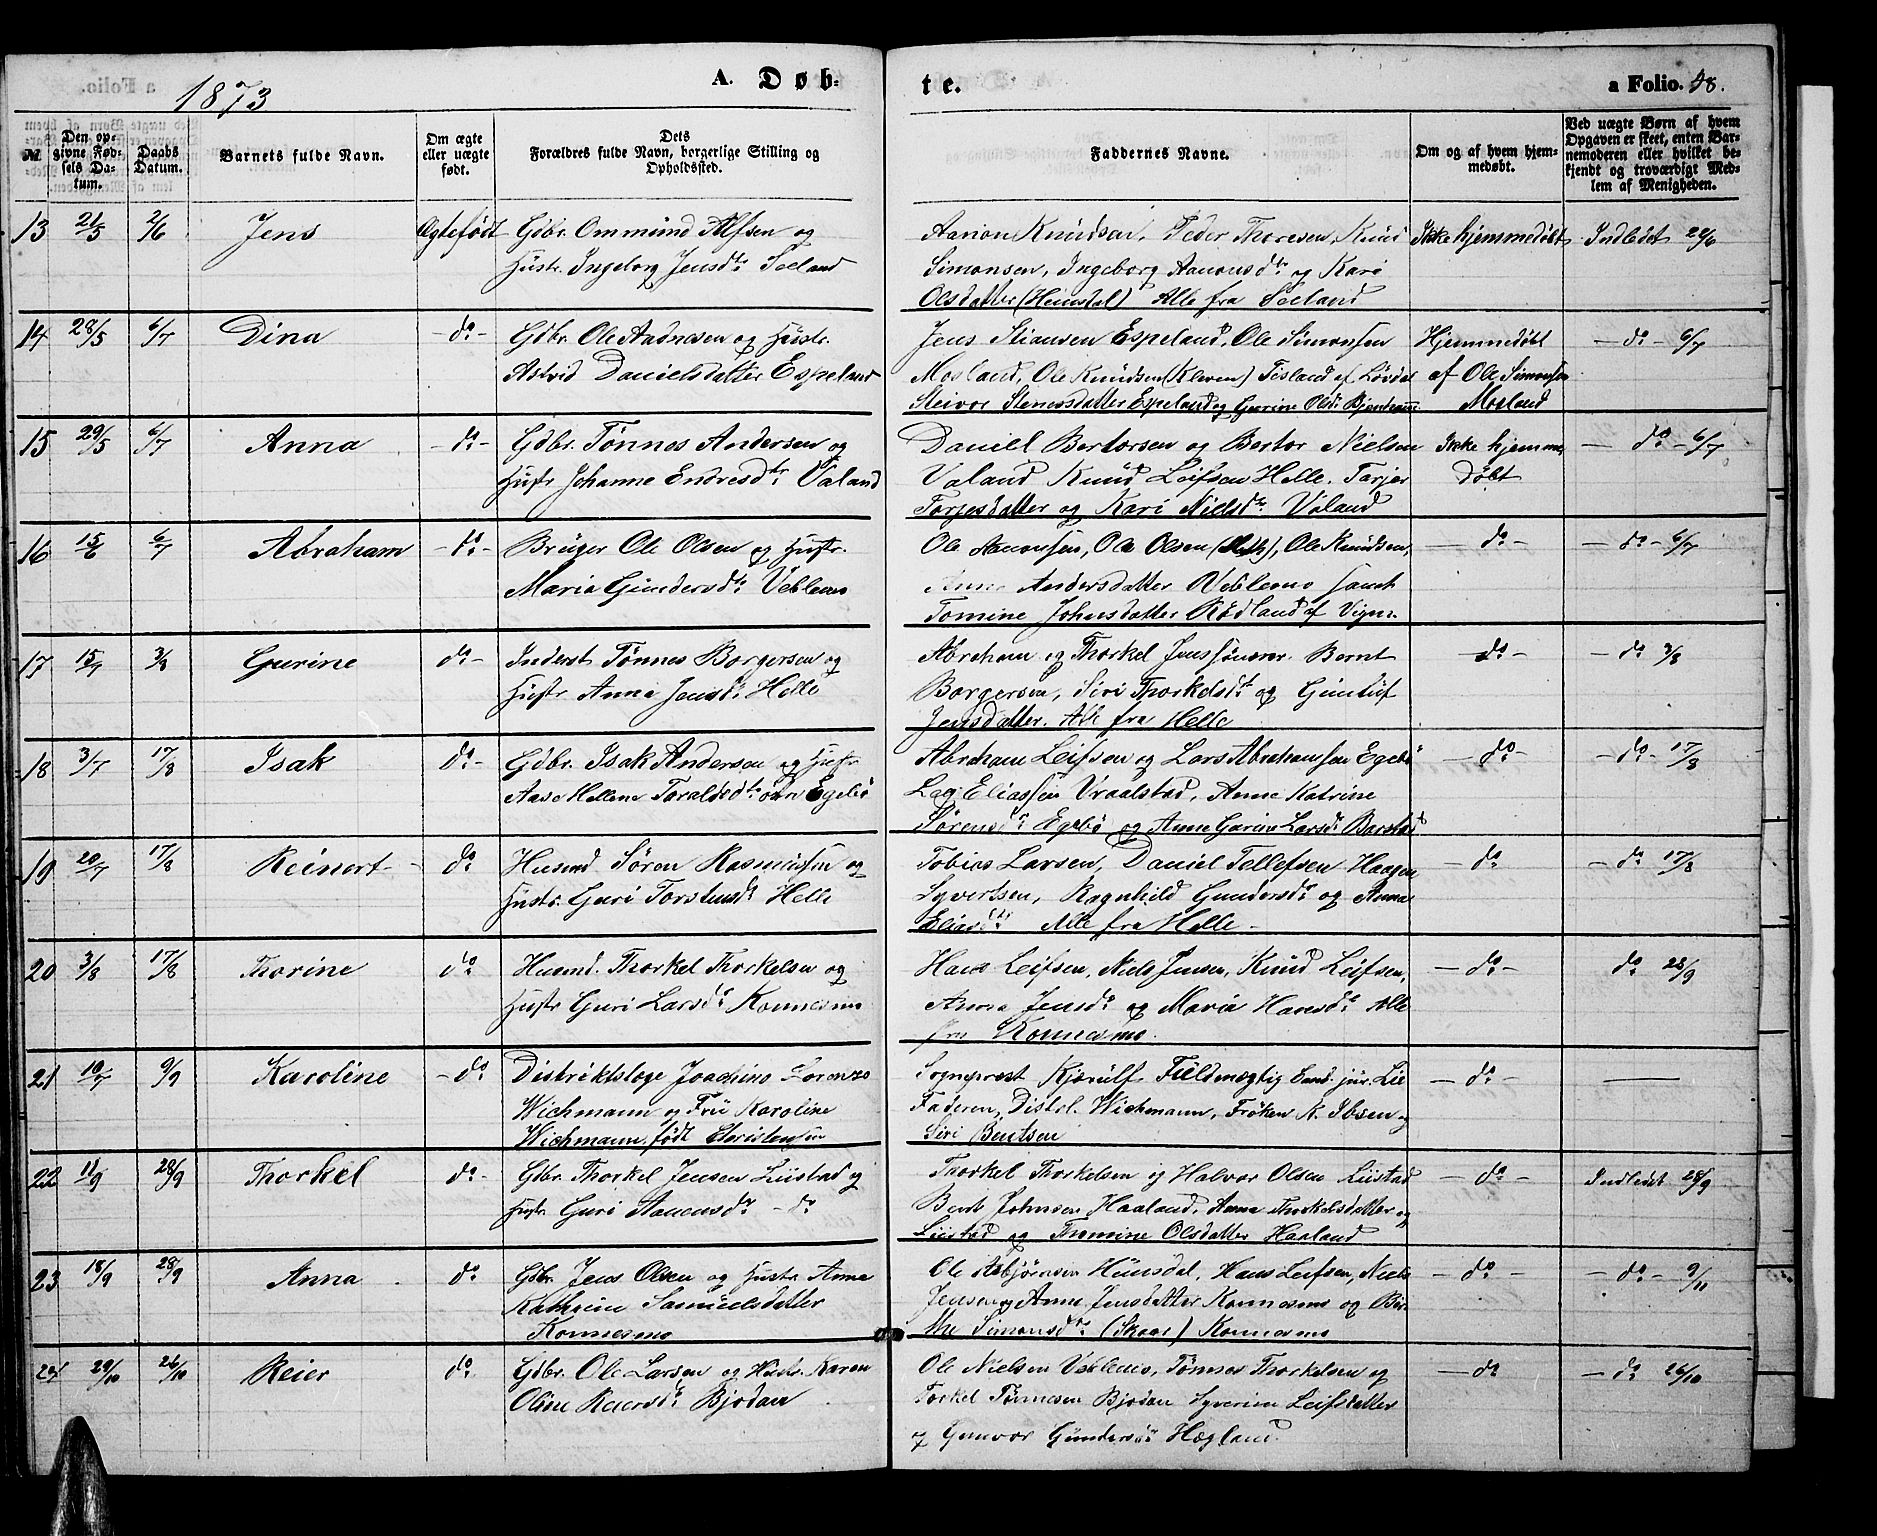 1873
A. Døb-
te.
a Folio. 48.
№
Den op-
givne Fød-
sels Da-
tum.
Daabs
Datum.
Barnets fulde Navn.
Om ægte
eller uægte
født.
Dets
Forældres fulde Navn, borgerlige Stilling og
Opholdssted.
Faddernes Navne.
Om og af hvem hjem-
medøbt.
Ved uægte Børn af hvem
Opgaven er skeet, enten Bar-
nemoderen eller hvilket be-
kjendt og troværdigt Med-
lem af Menigheden.
13 21/5 2/6 Jens Ægtefødt Gdbr. Ommund Alfsen og
Hustr. Ingeborg Jensdtr Seeland
Aanon Knudsen, Peder Thoresen, Knud
Simonsen, Ingeborg Aanonsdtr og Kari
Olsdatter (Heimdal) Alle fra Seeland
Ikke hjemmedøbt Indledet 29/6
14 28/5 6/7 Dina - do - Gdbr. Ole Aadnesen og Hustr.
Astrid Danielsdatter Espeland
Jens Stiansen Espeland, Ole Simonsen
Mosland, Ole Knudsen (Kleven) Fisland af Løvdal
Steivor Stenersdatter Espeland og Gurine Olsdtr
Hjemmedøbt
af Ole Simonsen
Mosland
- do - 6/7
15 29/5 6/7 Anna - do - Gdbr. Tønnes Andersen og
Hustr Johanne Endresdtr Valand
Daniel Bertorsen og Bertor Nielsen
Valand Knud Leifsen Helle. Tarjer
Torjesdatter og Kari Nielsdtr Valand
Ikke hjemme-
døbt
- do - 6/7
16 15/6 6/7 Abraham - do - Bruger Ole Olsen og Hustr.
Maria Gundersdtr Veblemo
Ole Aanonsen, Ole Olsen, Ole Knudsen,
Anne Andersdatter Veblemo samt
Tomine Johnsdatter Rødland af Vigm.
- do - - do - 6/7
17 15/7 3/8 Gurine do - Inderst Tønnes Borgersen og
Hustr Anna Jensdtr Helle
Abraham og Thorkel Jenssønner. Bernt
Borgersen, Siri Thorkelsdtr og Gunluf
Jensdatter. Alle fra Helle
do - - do 3/8
18 3/7 17/8 Isak do - Gdbr. Isak Andersen og Hustr
Aase Hellene Taraldsdtr øvre Egebø
Abraham Leifsen og Lars Abrahamsen Egebø
Lag. Eliassen Vraalstad, Anne Katrine
Sørensdtr Egebø og Anne Gurine Larsdtr Barstad
- do - - do - 17/8
19 20/7 17/8 Reinert - do Husmd Søren Rasmussen og
Hustr. Guri Torstensdtr Helle
Tobias Larsen, Daniel Tellefsen Haagen
Syvertsen, Ragnhild Gundersdtr og Anna
Eliasdtr Alle fra Helle -
- do - - do 17/8
20 3/8 17/8 Thorine do Husmd. Thorkel Thorkelsen og
Hustr Guri Larsdtr Konnesmo
Hans Leifsen, Niels Jensen, Knud Leifsen,
Anna Jensdtr og Maria Hansdtr Alle
fra Konnesmo.
- do - do 28/9
21 10/7 9/9 Karoline - do Distriktslæge Joachim Lorenzo
Wichmann og Fru Karoline
Wichmann, født Christensen
Sogneprest Kjerulf Fuldmægtig Cand. jur. Lie
Faderen, Distrl. Wichmann, Frøken K. Ibsen og
Siri Bentsen
- do -
22 11/9 28/9 Thorkel do - Gdbr. Thorkel Jensen Liistad og
Hustr. Guri Aanensdtr - do
Thorkel Thorkelsen og Halvor Olsen Liistad
Bent Johnsen Haaland, Anna Thorkelsdatter og
Liistad og Thomine Olsdatter Haaland
- do - Indledet 28/9
23 18/9 28/9 Anna do Gdbr. Jens Olsen og Hustr. Anna
Kathrine Samuelsdatter
Konnesmo
Ole Asbjørnsen Hunsdal, Hans Leifsen, Niels
Jensen og Anne Jensdatter Konnesmo og Bir-
the Simonsdtr (Skaar) Konnesmo
- do - - do - 9/10
24 29/10 26/10 Reier do Gdbr. Ole Larsen og Hustr. Karen
Oline Reiersdtr Bjodan
Ole Nielsen Veblemo, Tønnes Thorkelsen og
Torkel Tønnesen Bjodan Syverine Leifsdatter
og Gunvor Gundersdtr Hægland.
- do - do 26/10